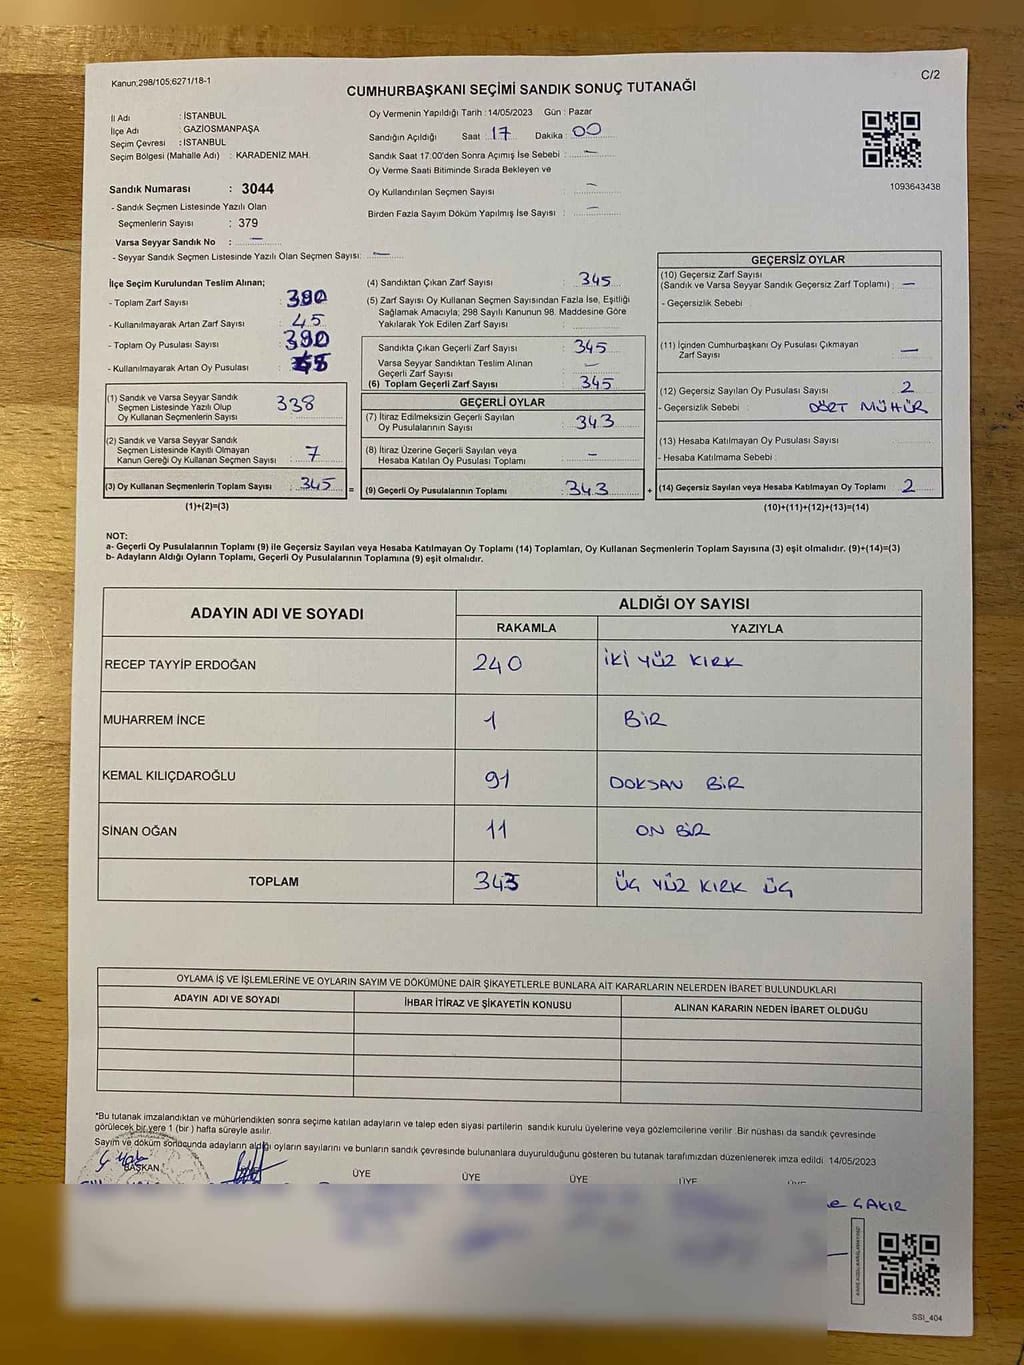 Kanun;298/105;6271/18-1
C/2
CUMHURBAŞKANI SEÇİMİ SANDIK SONUÇ TUTANAĞI
İl Adı : İSTANBUL
İlçe Adı : GAZİOSMANPAŞA
Seçim Çevresi : İSTANBUL
Seçim Bölgesi (Mahalle Adı) : KARADENİZ MAH.
Sandık Numarası : 3044
- Sandık Seçmen Listesinde Yazılı Olan
Seçmenlerin Sayısı : 379
Varsa Seyyar Sandık No : —
- Seyyar Sandık Seçmen Listesinde Yazılı Olan Seçmen Sayısı: —
Oy Vermenin Yapıldığı Tarih : 14/05/2023 Gün : Pazar
Sandığın Açıldığı Saat : 17 Dakika : 00
Sandık Saat 17:00'den Sonra Açımış İse Sebebi : —
Oy Verme Saati Bitiminde Sırada Bekleyen ve
Oy Kullandırılan Seçmen Sayısı : —
Birden Fazla Sayım Döküm Yapılmış İse Sayısı : —
1093643438
İlçe Seçim Kurulundan Teslim Alınan;
- Toplam Zarf Sayısı : 390
- Kullanılmayarak Artan Zarf Sayısı : 45
- Toplam Oy Pusulası Sayısı : 390
- Kullanılmayarak Artan Oy Pusulası : 45
(1) Sandık ve Varsa Seyyar Sandık
Seçmen Listesinde Yazılı Olup
Oy Kullanan Seçmenlerin Sayısı : 338
(2) Sandık ve Varsa Seyyar Sandık
Seçmen Listesinde Kayıtlı Olmayan
Kanun Gereği Oy Kullanan Seçmen Sayısı : 7
(3) Oy Kullanan Seçmenlerin Toplam Sayısı : 345 =
(1)+(2)=(3)
(4) Sandıktan Çıkan Zarf Sayısı : 345
(5) Zarf Sayısı Oy Kullanan Seçmen Sayısından Fazla İse, Eşitliği
Sağlamak Amacıyla; 298 Sayılı Kanunun 98. Maddesine Göre
Yakılarak Yok Edilen Zarf Sayısı :
Sandıkta Çıkan Geçerli Zarf Sayısı : 345
Varsa Seyyar Sandıktan Teslim Alınan
Geçerli Zarf Sayısı : —
(6) Toplam Geçerli Zarf Sayısı : 345
GEÇERLİ OYLAR
(7) İtiraz Edilmeksizin Geçerli Sayılan
Oy Pusulalarının Sayısı : 343
(8) İtiraz Üzerine Geçerli Sayılan veya
Hesaba Katılan Oy Pusulası Toplamı : —
(9) Geçerli Oy Pusulalarının Toplamı : 343 +
GEÇERSİZ OYLAR
(10) Geçersiz Zarf Sayısı
(Sandık ve Varsa Seyyar Sandık Geçersiz Zarf Toplamı) : —
- Geçersizlik Sebebi :
(11) İçinden Cumhurbaşkanı Oy Pusulası Çıkmayan
Zarf Sayısı : —
(12) Geçersiz Sayılan Oy Pusulası Sayısı : 2
- Geçersizlik Sebebi : DÖRT MÜHÜR
(13) Hesaba Katılmayan Oy Pusulası Sayısı :
- Hesaba Katılmama Sebebi :
(14) Geçersiz Sayılan veya Hesaba Katılmayan Oy Toplamı : 2
(10)+(11)+(12)+(13)=(14)
NOT:
a- Geçerli Oy Pusulalarının Toplamı (9) ile Geçersiz Sayılan veya Hesaba Katılmayan Oy Toplamı (14) Toplamları, Oy Kullanan Seçmenlerin Toplam Sayısına (3) eşit olmalıdır. (9)+(14)=(3)
b- Adayların Aldığı Oyların Toplamı, Geçerli Oy Pusulalarının Toplamına (9) eşit olmalıdır.
ADAYIN ADI VE SOYADI ALDIĞI OY SAYISI
RAKAMLA YAZIYLA
RECEP TAYYİP ERDOĞAN 240 İKİ YÜZ KIRK
MUHARREM İNCE 1 BİR
KEMAL KILIÇDAROĞLU 91 DOKSAN BİR
SİNAN OĞAN 11 ON BİR
TOPLAM 343 ÜÇ YÜZ KIRK ÜÇ
OYLAMA İŞ VE İŞLEMLERİNE VE OYLARIN SAYIM VE DÖKÜMÜNE DAİR ŞİKAYETLERLE BUNLARA AİT KARARLARIN NELERDEN İBARET BULUNDUKLARI
ADAYIN ADI VE SOYADI İHBAR İTİRAZ VE ŞİKAYETİN KONUSU ALINAN KARARIN NEDEN İBARET OLDUĞU
*Bu tutanak imzalandıktan ve mühürlendikten sonra seçime katılan adayların ve talep eden siyasi partilerin sandık kurulu üyelerine veya gözlemcilerine verilir .Bir nüshası da sandık çevresinde
görülecek bir yere 1 (bir ) hafta süreyle asılır.
Sayım ve döküm sonucunda adayların aldığı oyların sayılarını ve bunların sandık çevresinde bulunanlara duyurulduğunu gösteren bu tutanak tarafımızdan düzenlenerek imza edildi. 14/05/2023
BAŞKAN ÜYE ÜYE ÜYE ÜYE
ÇAKIR
SSI_404